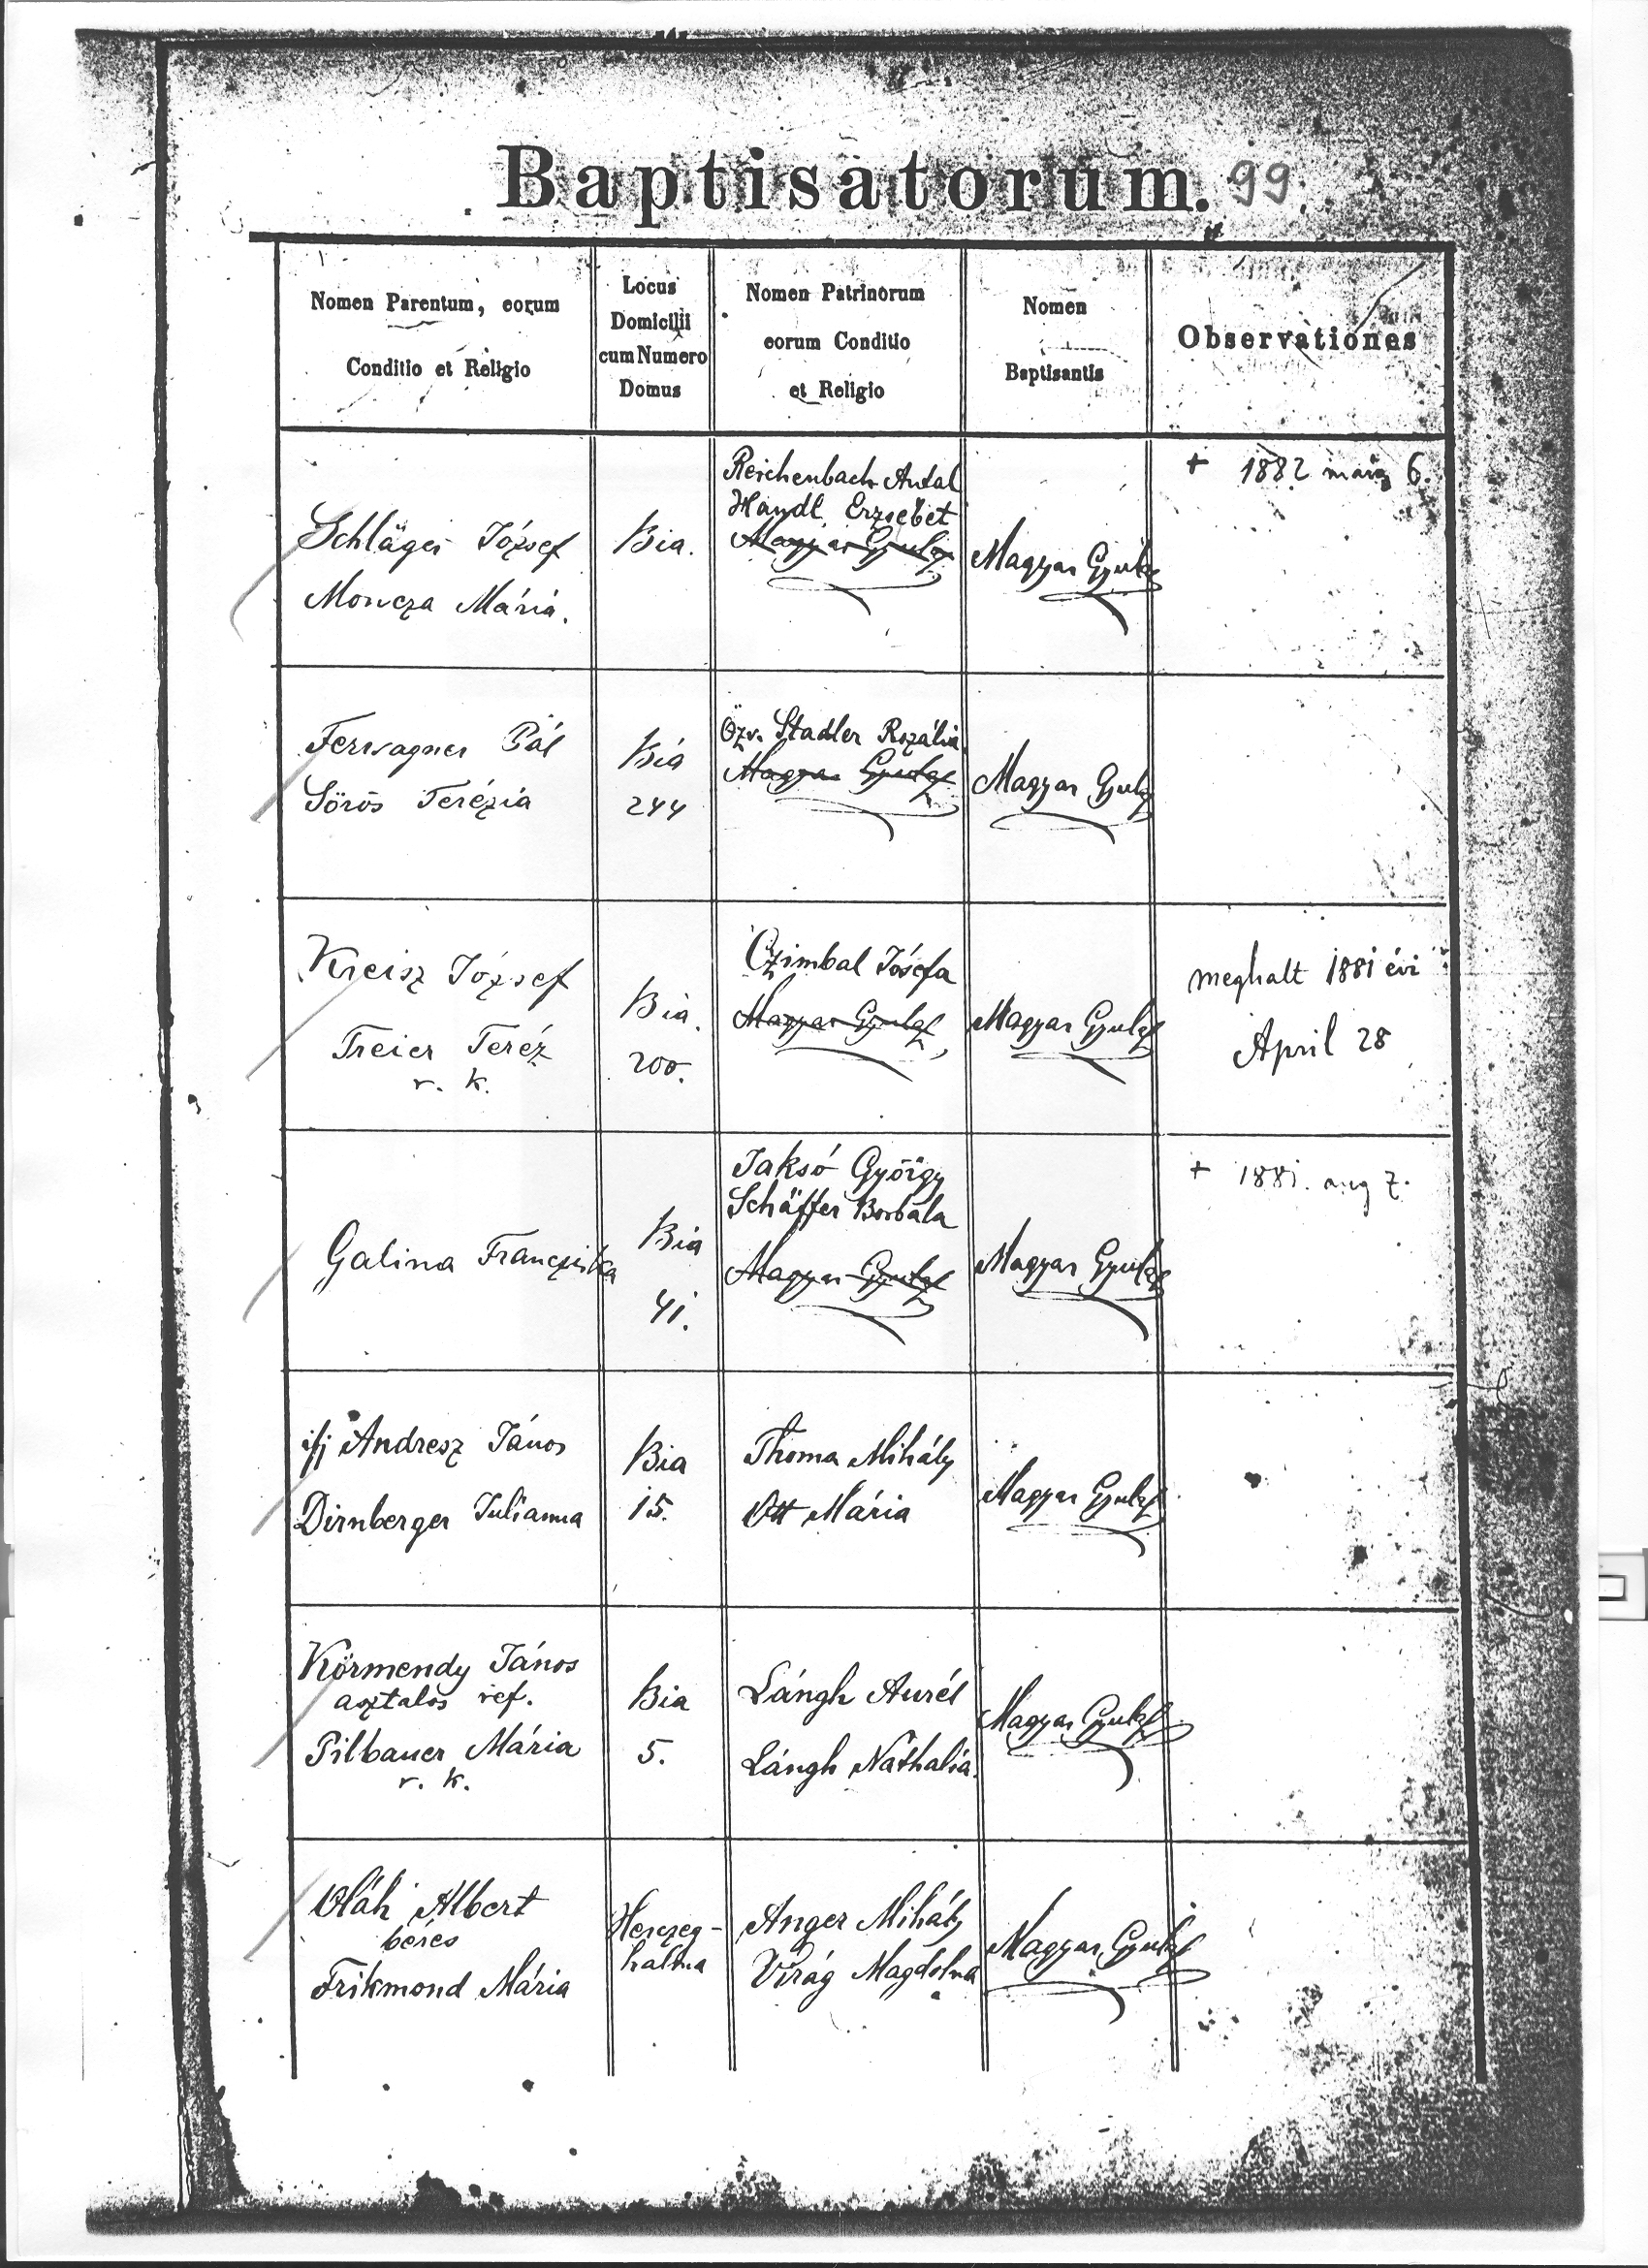 Baptisatorum. 99
Nomen Parentum, eorum
Conditio et Religio
Locus
Domicilii
cum Numero
Domus
Nomen Patrinorum
eorum Conditio
et Religio
Nomen
Baptisantis
Observationes
Schläger József
Moncza Mária.
Bia.
Reichenbach Antal
Handl Erzsébet
Magyar Gyula
Magyar Gyula
+ 1882 maig 6.
Ferwagner Pál
Sörös Terézia
Bia
244
Özv. Stadler Rozália
Magyar Gyula
Magyar Gyula
Kreisz József
Treier Teréz
r. k.
Bia.
200.
Czimbal Jósefa
Magyar Gyula
Magyar Gyula
meghalt 1881 évi
April 28
Galina Francziska
Bia
41.
Jaksó György
Schäffer Borbala
Magyar Gyula
Magyar Gyula
+ 1881. aug 7.
ifj Andresz János
Dirnberger Julianna
Bia
15.
Thoma Mihály
Ott Mária
Magyar Gyula
Körmendy János
asztalos ref.
Pilbauer Mária
r. k.
Bia
5.
Lángh Aurél
Lángh Nathalia.
Magyar Gyula
Oláh Albert
béres
Frikmond Mária
Herczeg-
halma
Anger Mihály
Virág Magdolna
Magyar Gyula